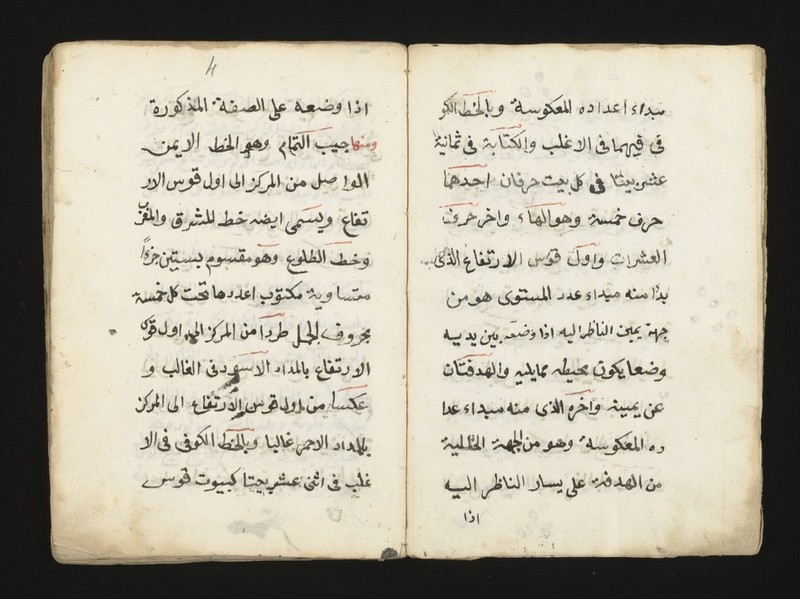 مبداء اعداده المعكوسة وبالخط الكو
في فيهما في الاغلب والكتابة في ثمانية
عشر بيتا في كل بيت حرفان احدهما
حرف خمسة وهو الهاء واخر حرف
العشرات واول قوس الارتفاع الذي
بدا منه مبداء عدد المستوى هو من
جهة يمين الناظر اليه اذا وضعه بين يديه
وضعا يكون محيطه مما يليه والهدفتان
عن يمينه واخره الذي منه مبداء عدا
ده المعكوسة وهو من الجهة الخالية
من الهدفة على يسار الناظر اليه
اذا
4
اذا وضعه على الصفة المذكورة
ومنها جيب التمام وهو الخط الايمن
الواصل من المركز الى اول قوس الار
تفاع ويسمى ايضه خط المشرق والمغرب
وخط الطلوع وهو مقسوم بستين جزءا
متساوية مكتوب اعدادها تحت كل خمسة
بحروف الجمل طردا من المركز الى اول قوس
الارتفاع بالمداد الاسود في الغالب و
عكسا من اول قوس الارتفاع الى المركز
بالمداد الاحمر غالبا وبالخط الكوفي في الا
غلب في اثنى عشر بيتا كبيوت قوس